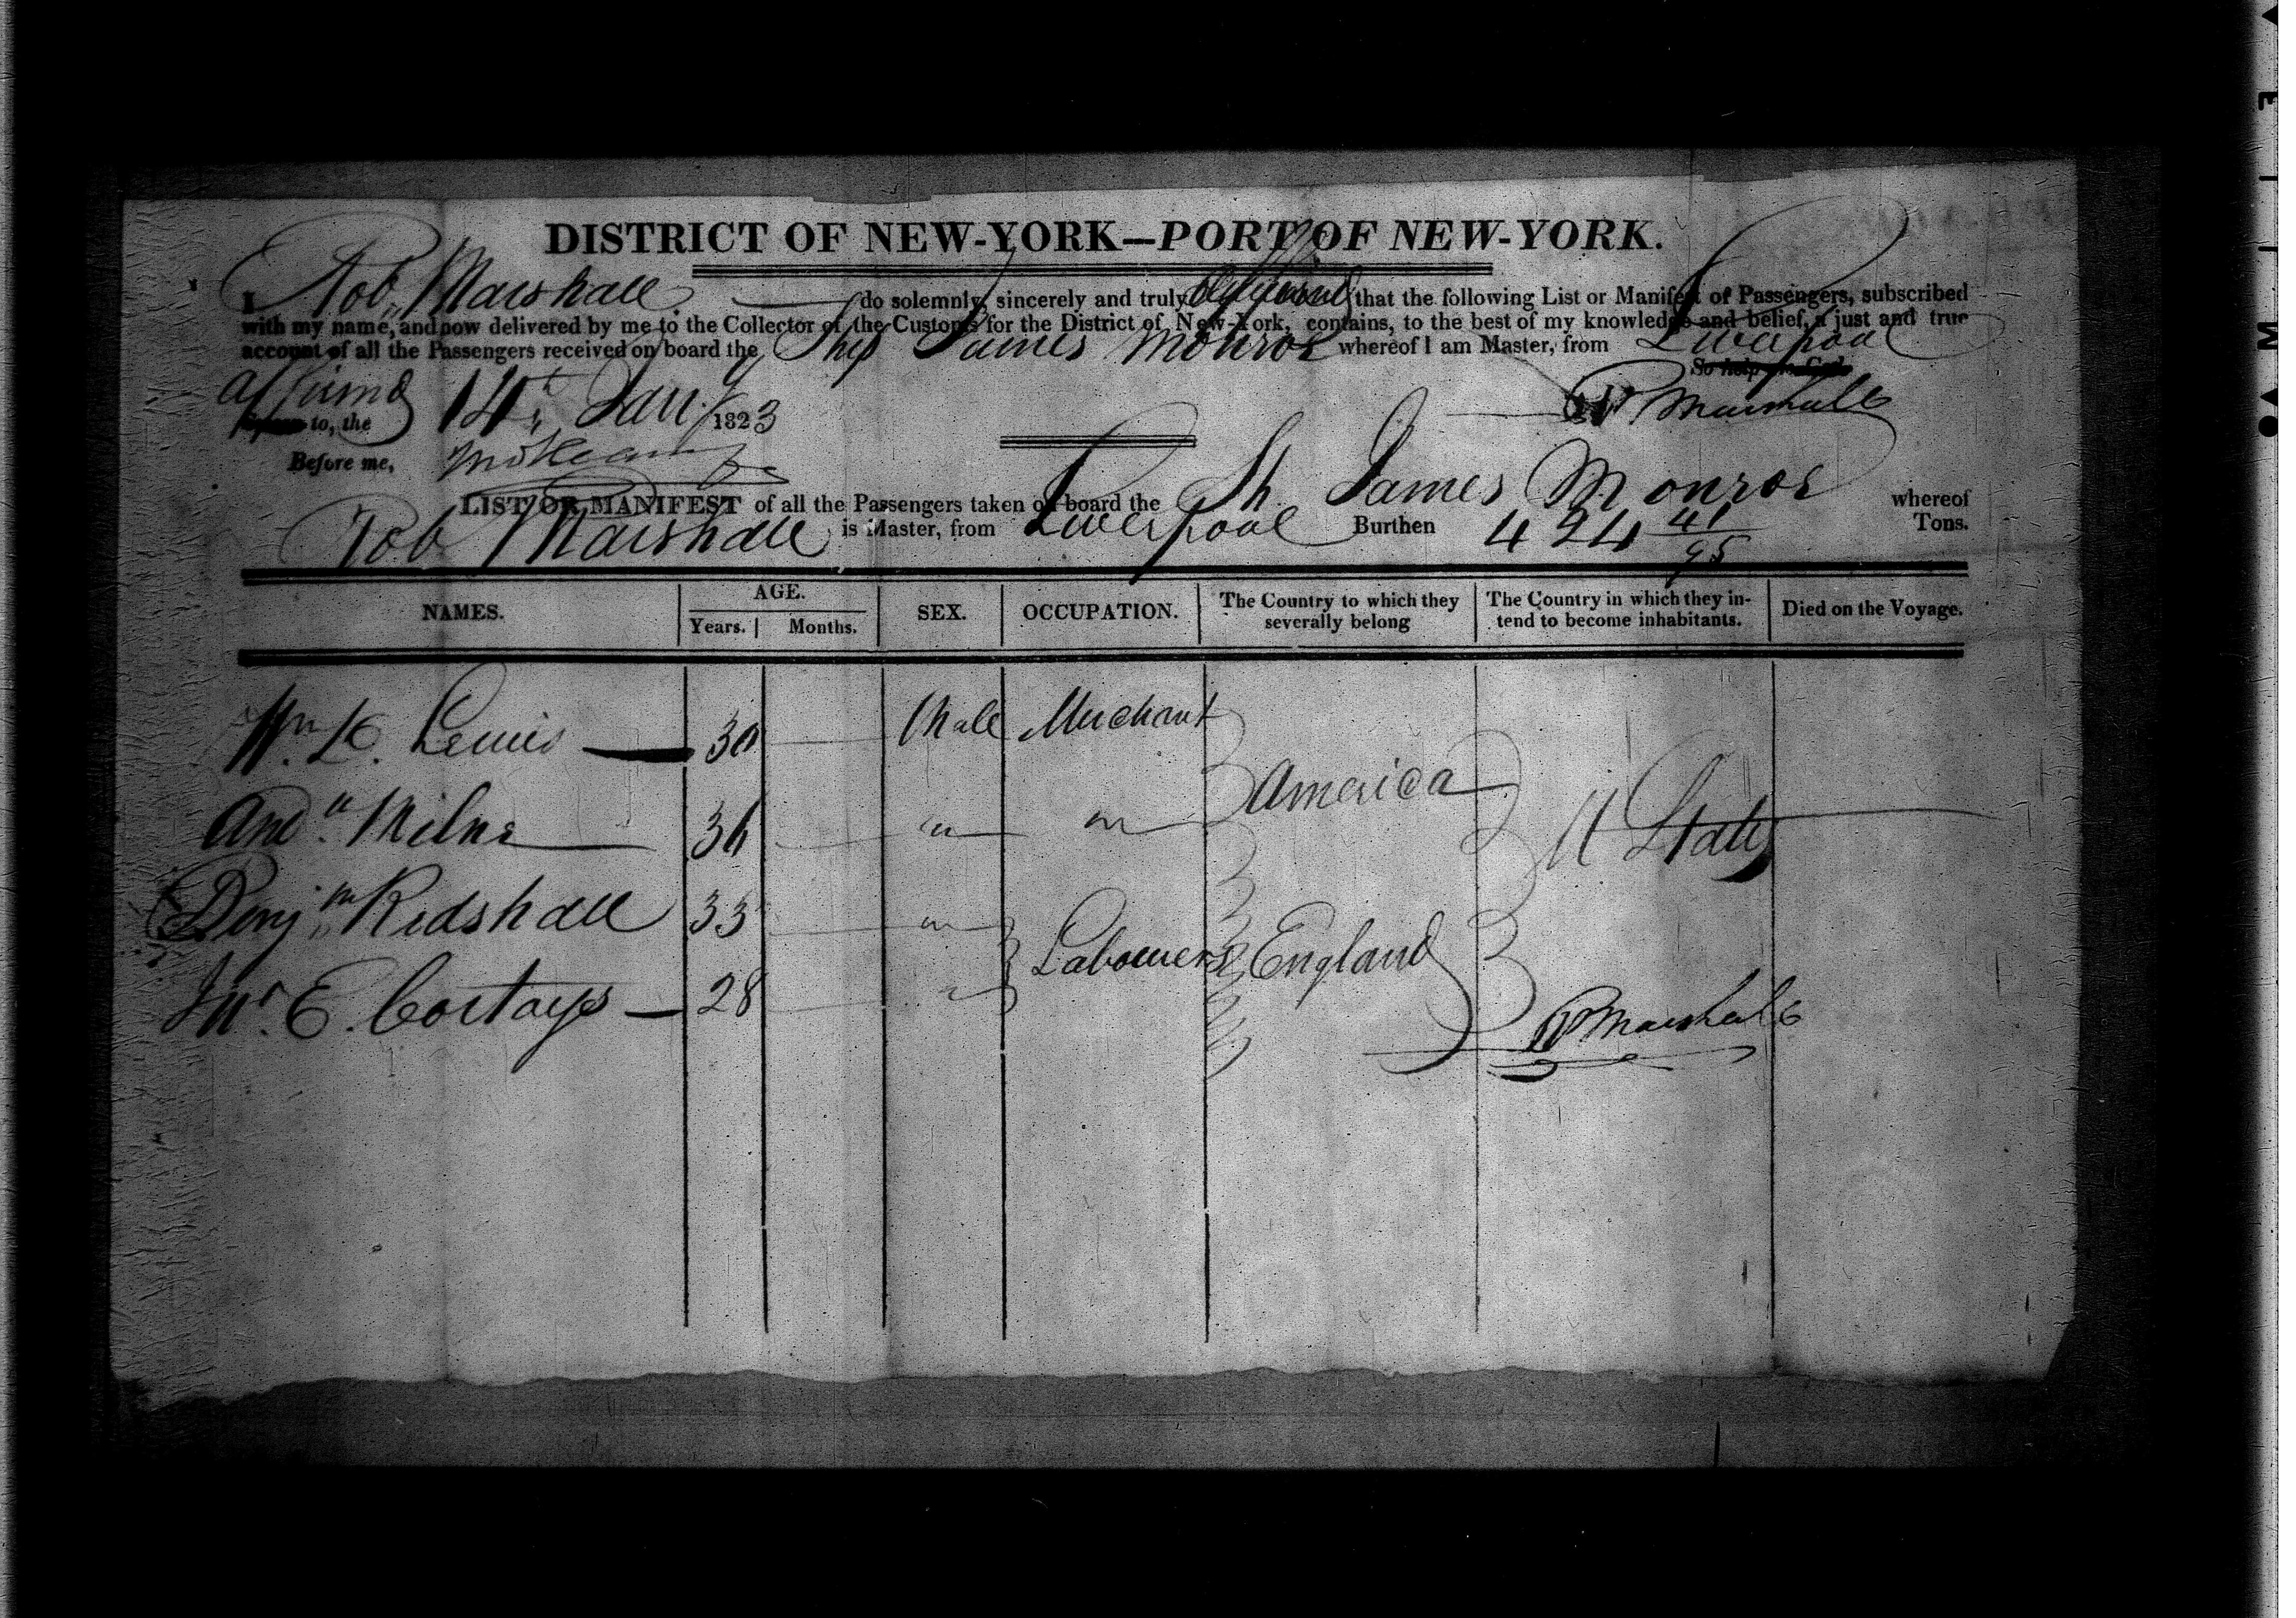 DISTRICT OF NEW-YORK—PORT OF NEW-YORK.
I, Rob. Marshall do solemnly, sincerely and truly that the following List or Manifest of Passengers, subscribed
with my name, and now delivered by me to the Collector of the Customs for the District of New-York, contains, to the best of my knowledge and belief, a just and true
account of all the Passengers received on board the Ship James Monroe whereof I am Master, from Liverpool
So help me God.
affirmd to, the 14th Jany 1823
R Marshall
Before me,
LIST OR MANIFEST of all the Passengers taken on board the Sh. James Monroe whereof
Rob Marshall is Master, from Liverpool Burthen 424 41/95 Tons.
NAMES. AGE. SEX. OCCUPATION. The Country to which they severally belong The Country in which they in-tend to become inhabitants. Died on the Voyage.
Years. Months.
Wm. K. Lewis 30 Male Merchant
America
Andw. Milne 36 " "
U States
Benjm. Kidshall 33 "
Labourers England
Jno. E. 28 "
R Marshall